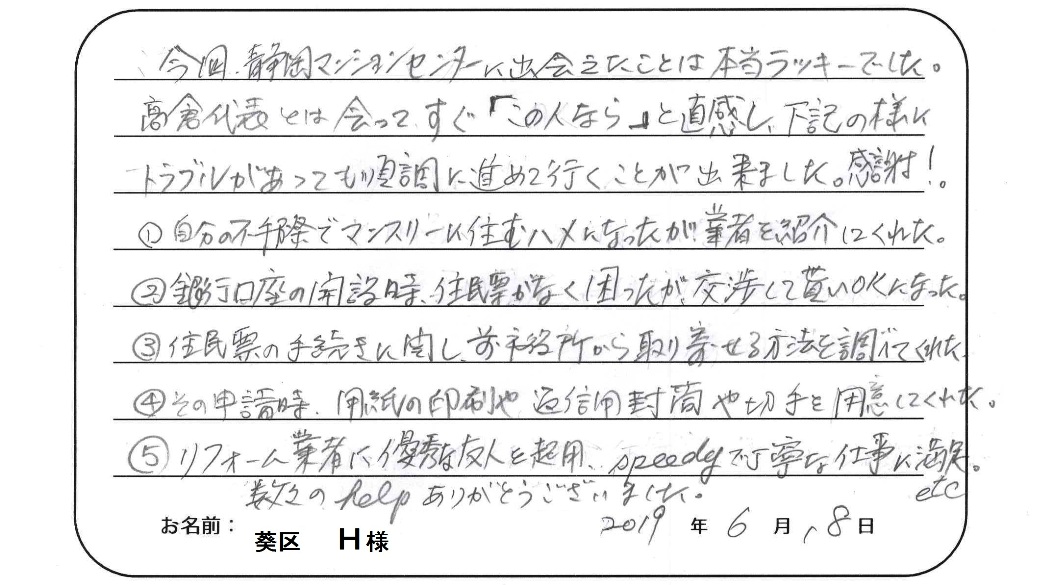 今回、静岡マンションセンターに出会えたことは本当ラッキーでした。
高倉代表とは会って、すぐ「この人なら」と直感し、下記の様に
トラブルがあっても順調に進めて行くことが出来ました。感謝!。
①自分の不手際でマンスリーに住むハメになったが業者を紹介してくれた。
②銀行口座の開設時、住民票がなく困ったが、交渉して貰いOKになった。
③住民票の手続きに関し、前市役所から取り寄せる方法を調べてくれた。
④その申請時、用紙の印刷や返信用封筒や切手を用意してくれた。
⑤リフォーム業者に優秀な友人を起用、speedyで丁寧な仕事に満足。
etc
数々のhelpありがとうございました。
2019年6月,8日
お名前:葵区 H様